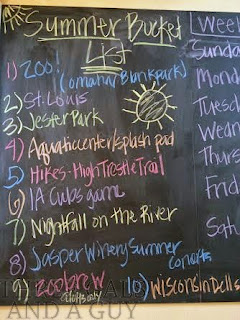 Summer Bucket
List
1) ZOO!
(omaha/Blank park)
2) St. Louis
3) Jester Park
4) Aquatic center/splash pad
5) Hikes-High Trestle Trail
6) IA Cubs game
7) Nightfall on the River
8) Jasper Winery Summer
concerts
9) zoobrew
10) Wisconsin Dells
Week
Sunda
Mond
Tuesd
Wedn
Thurs
Frid
Satu
AND A GUY